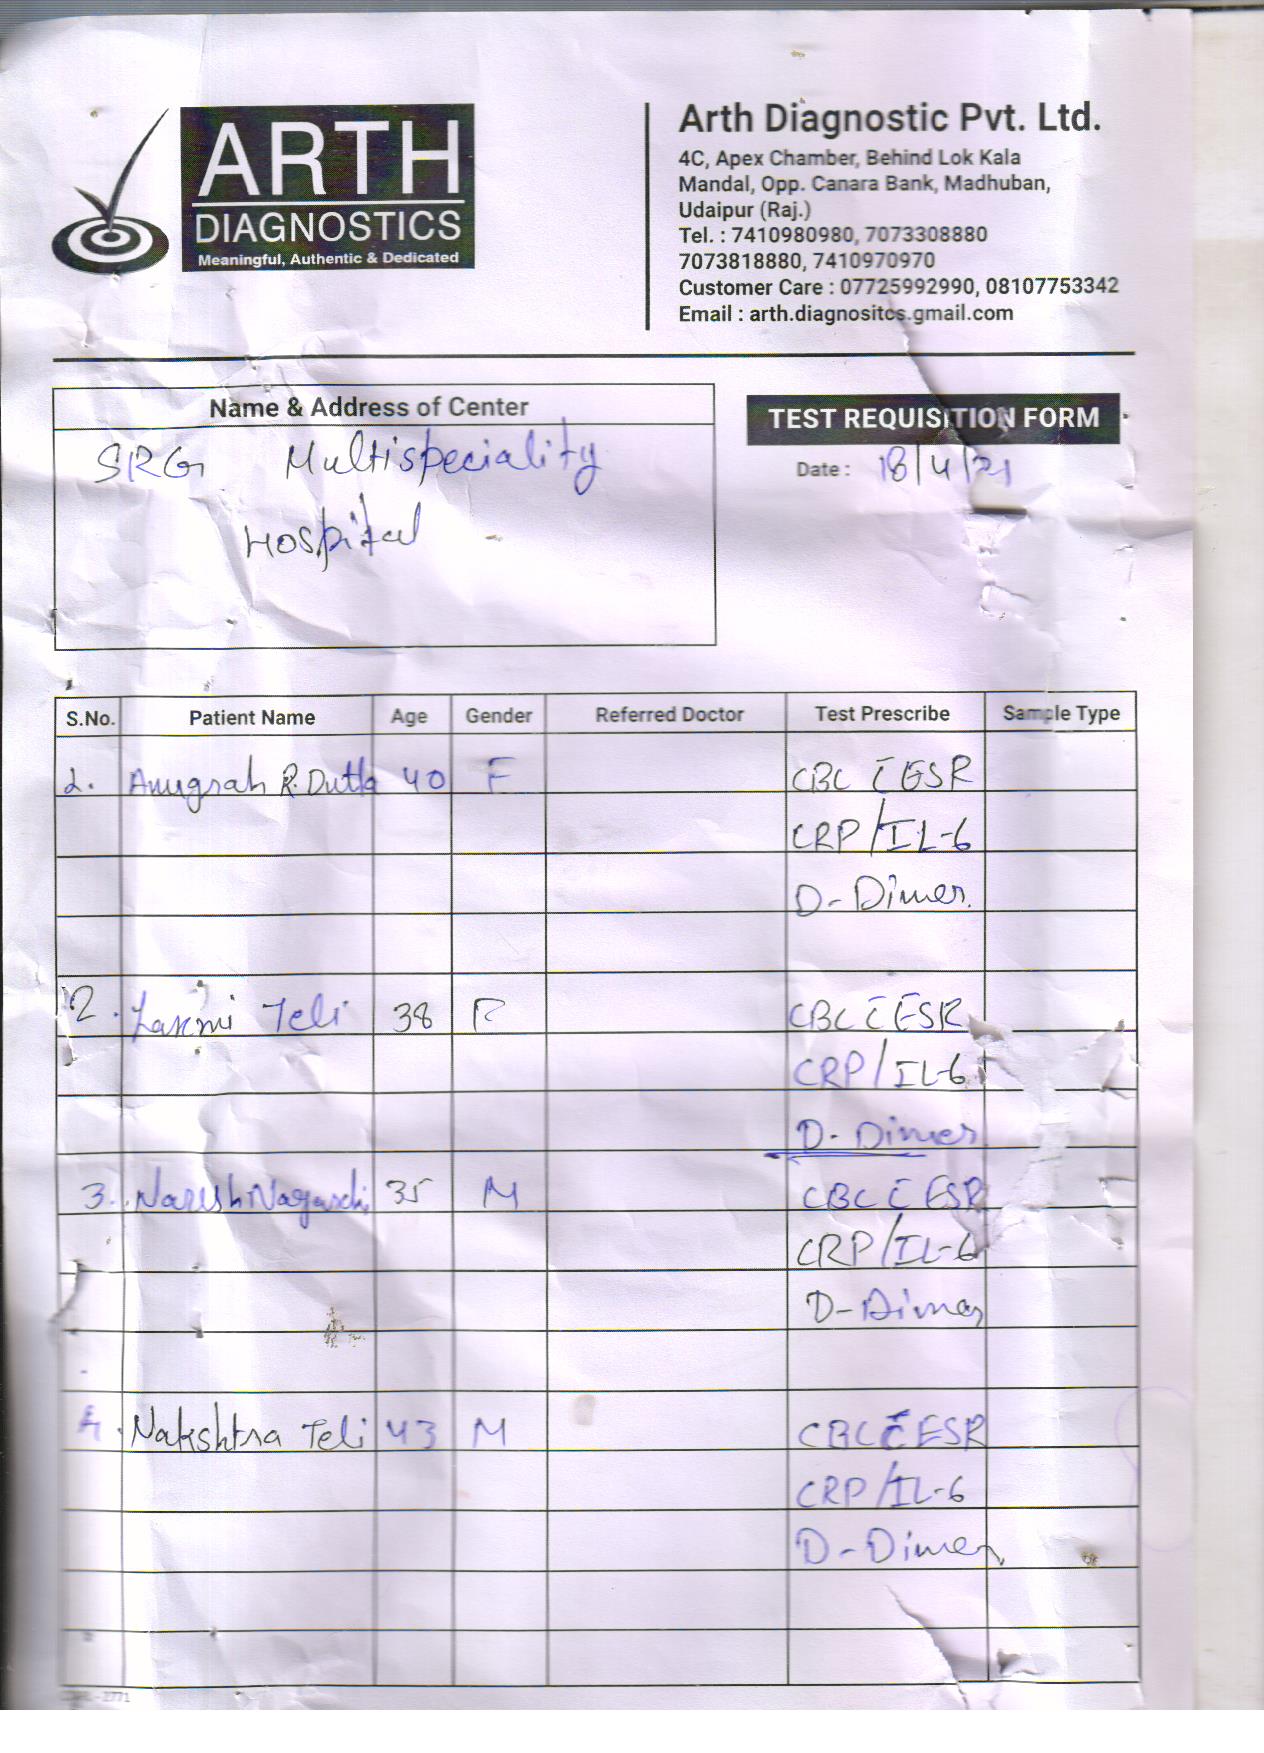 ARTH
DIAGNOSTICS
Meaningful, Authentic & Dedicated
Arth Diagnostic Pvt. Ltd.
4C, Apex Chamber, Behind Lok Kala
Mandal, Opp. Canara Bank, Madhuban,
Udaipur (Raj.)
Tel. : 7410980980, 7073308880
7073818880, 7410970970
Customer Care : 07725992990, 08107753342
Email : arth.diagnositcs.gmail.com
Name & Address of Center
SRG Multispeciality
Hospital
TEST REQUISITION FORM
Date : 18/4/21
S.No. Patient Name Age Gender Referred Doctor Test Prescribe Sample Type
1. Anugrah R. Dutta 40 F CBC c̄ ESR
CRP/IL-6
D-Dimer
2. Laxmi Teli 38 F CBC c̄ ESR
CRP/IL-6
D-Dimer
3. Naresh 35 M CBC c̄ ESR
CRP/IL-6
D-Dimer
4. Nakshtra Teli 43 M CBC c̄ ESR
CRP/IL-6
D-Dimer